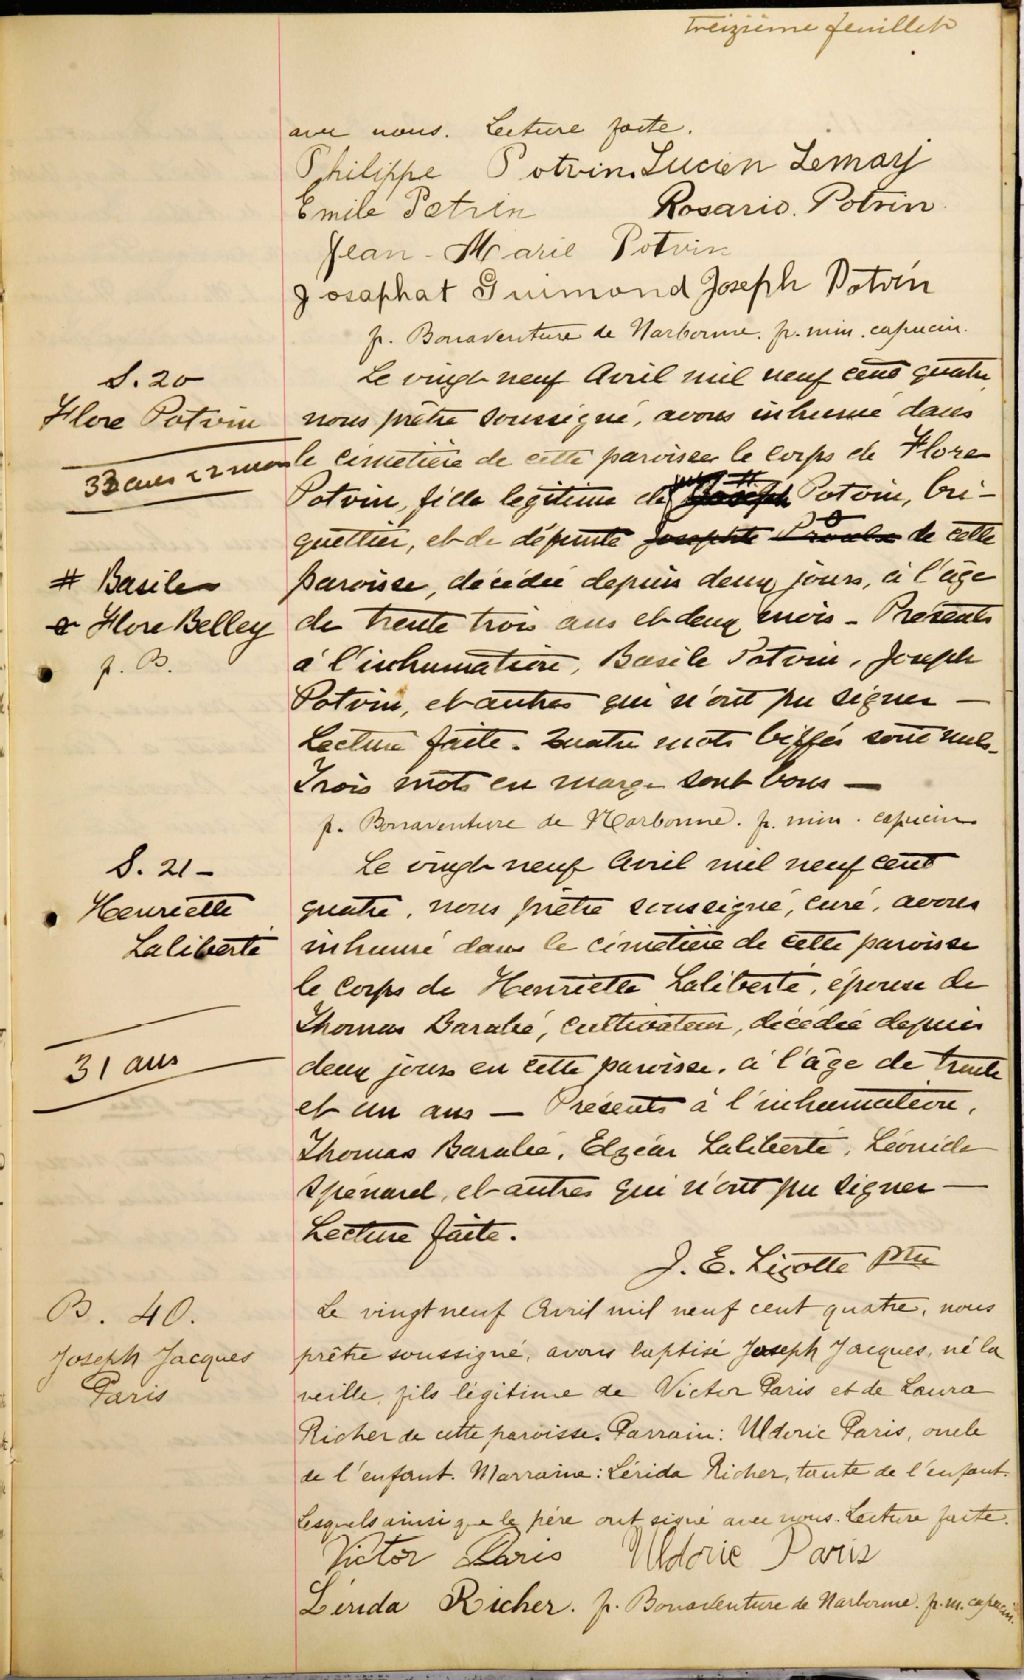 treizième feuillet
avec nous. Lecture faite.
Philippe Potvin. Lucien Lemay
Emile Potvin Rosario. Potvin
Jean-Marie Potvin
Josaphat Guimond Joseph Potvin
p. Bonaventure de Narbonne. p. min. capucin.
S. 20
Flore Potvin
33 ans 2 mois
Le vingt neuf Avril mil neuf cent quatre
nous prêtre soussigné, avons inhumé dans
le cimetière de cette paroisse le corps de Flore
Potvin, fille légitime de # Joseph Potvin, bri-
quettier, et de défunte Josephte Proulx de cette
paroisse, décédée depuis deux jours, à l'âge
de trente trois ans et deux mois - Présents
à l'inhumation, Basile Potvin, Joseph
Potvin, et autres qui n'ont pu signer —
Lecture faite. Quatre mots biffés sont nuls.
Trois mots en marge sont bons —
p. Bonaventure de Narbonne. p. min. capucin
# Basile
Flore Belley
p. B.
S. 21 -
Henriette
Laliberté
31 ans
Le vingt neuf Avril mil neuf cent
quatre, nous prêtre soussigné, curé, avons
inhumé dans le cimetière de cette paroisse
le corps de Henriette Laliberté, épouse de
Thomas Barabé, cultivateur, décédée depuis
deux jours en cette paroisse, à l'âge de trente
et un ans — Présents à l'inhumation,
Thomas Barabé, Elzéar Laliberté, Léonide
Spénard, et autres qui n'ont pu signer —
Lecture faite.
J. E. Lizotte Ptre
B. 40.
Joseph Jacques
Paris
Le vingt neuf Avril mil neuf cent quatre, nous
prêtre soussigné, avons baptisé Joseph Jacques, né la
veille, fils légitime de Victor Paris et de Laura
Richer de cette paroisse. Parrain: Ulderic Paris, oncle
de l'enfant. Marraine: Lérida Richer, tante de l'enfant.
Lesquels ainsi que le père ont signé avec nous. Lecture faite.
Victor Paris Ulderic Paris
Lérida Richer. p. Bonaventure de Narbonne. p. m. capucin.